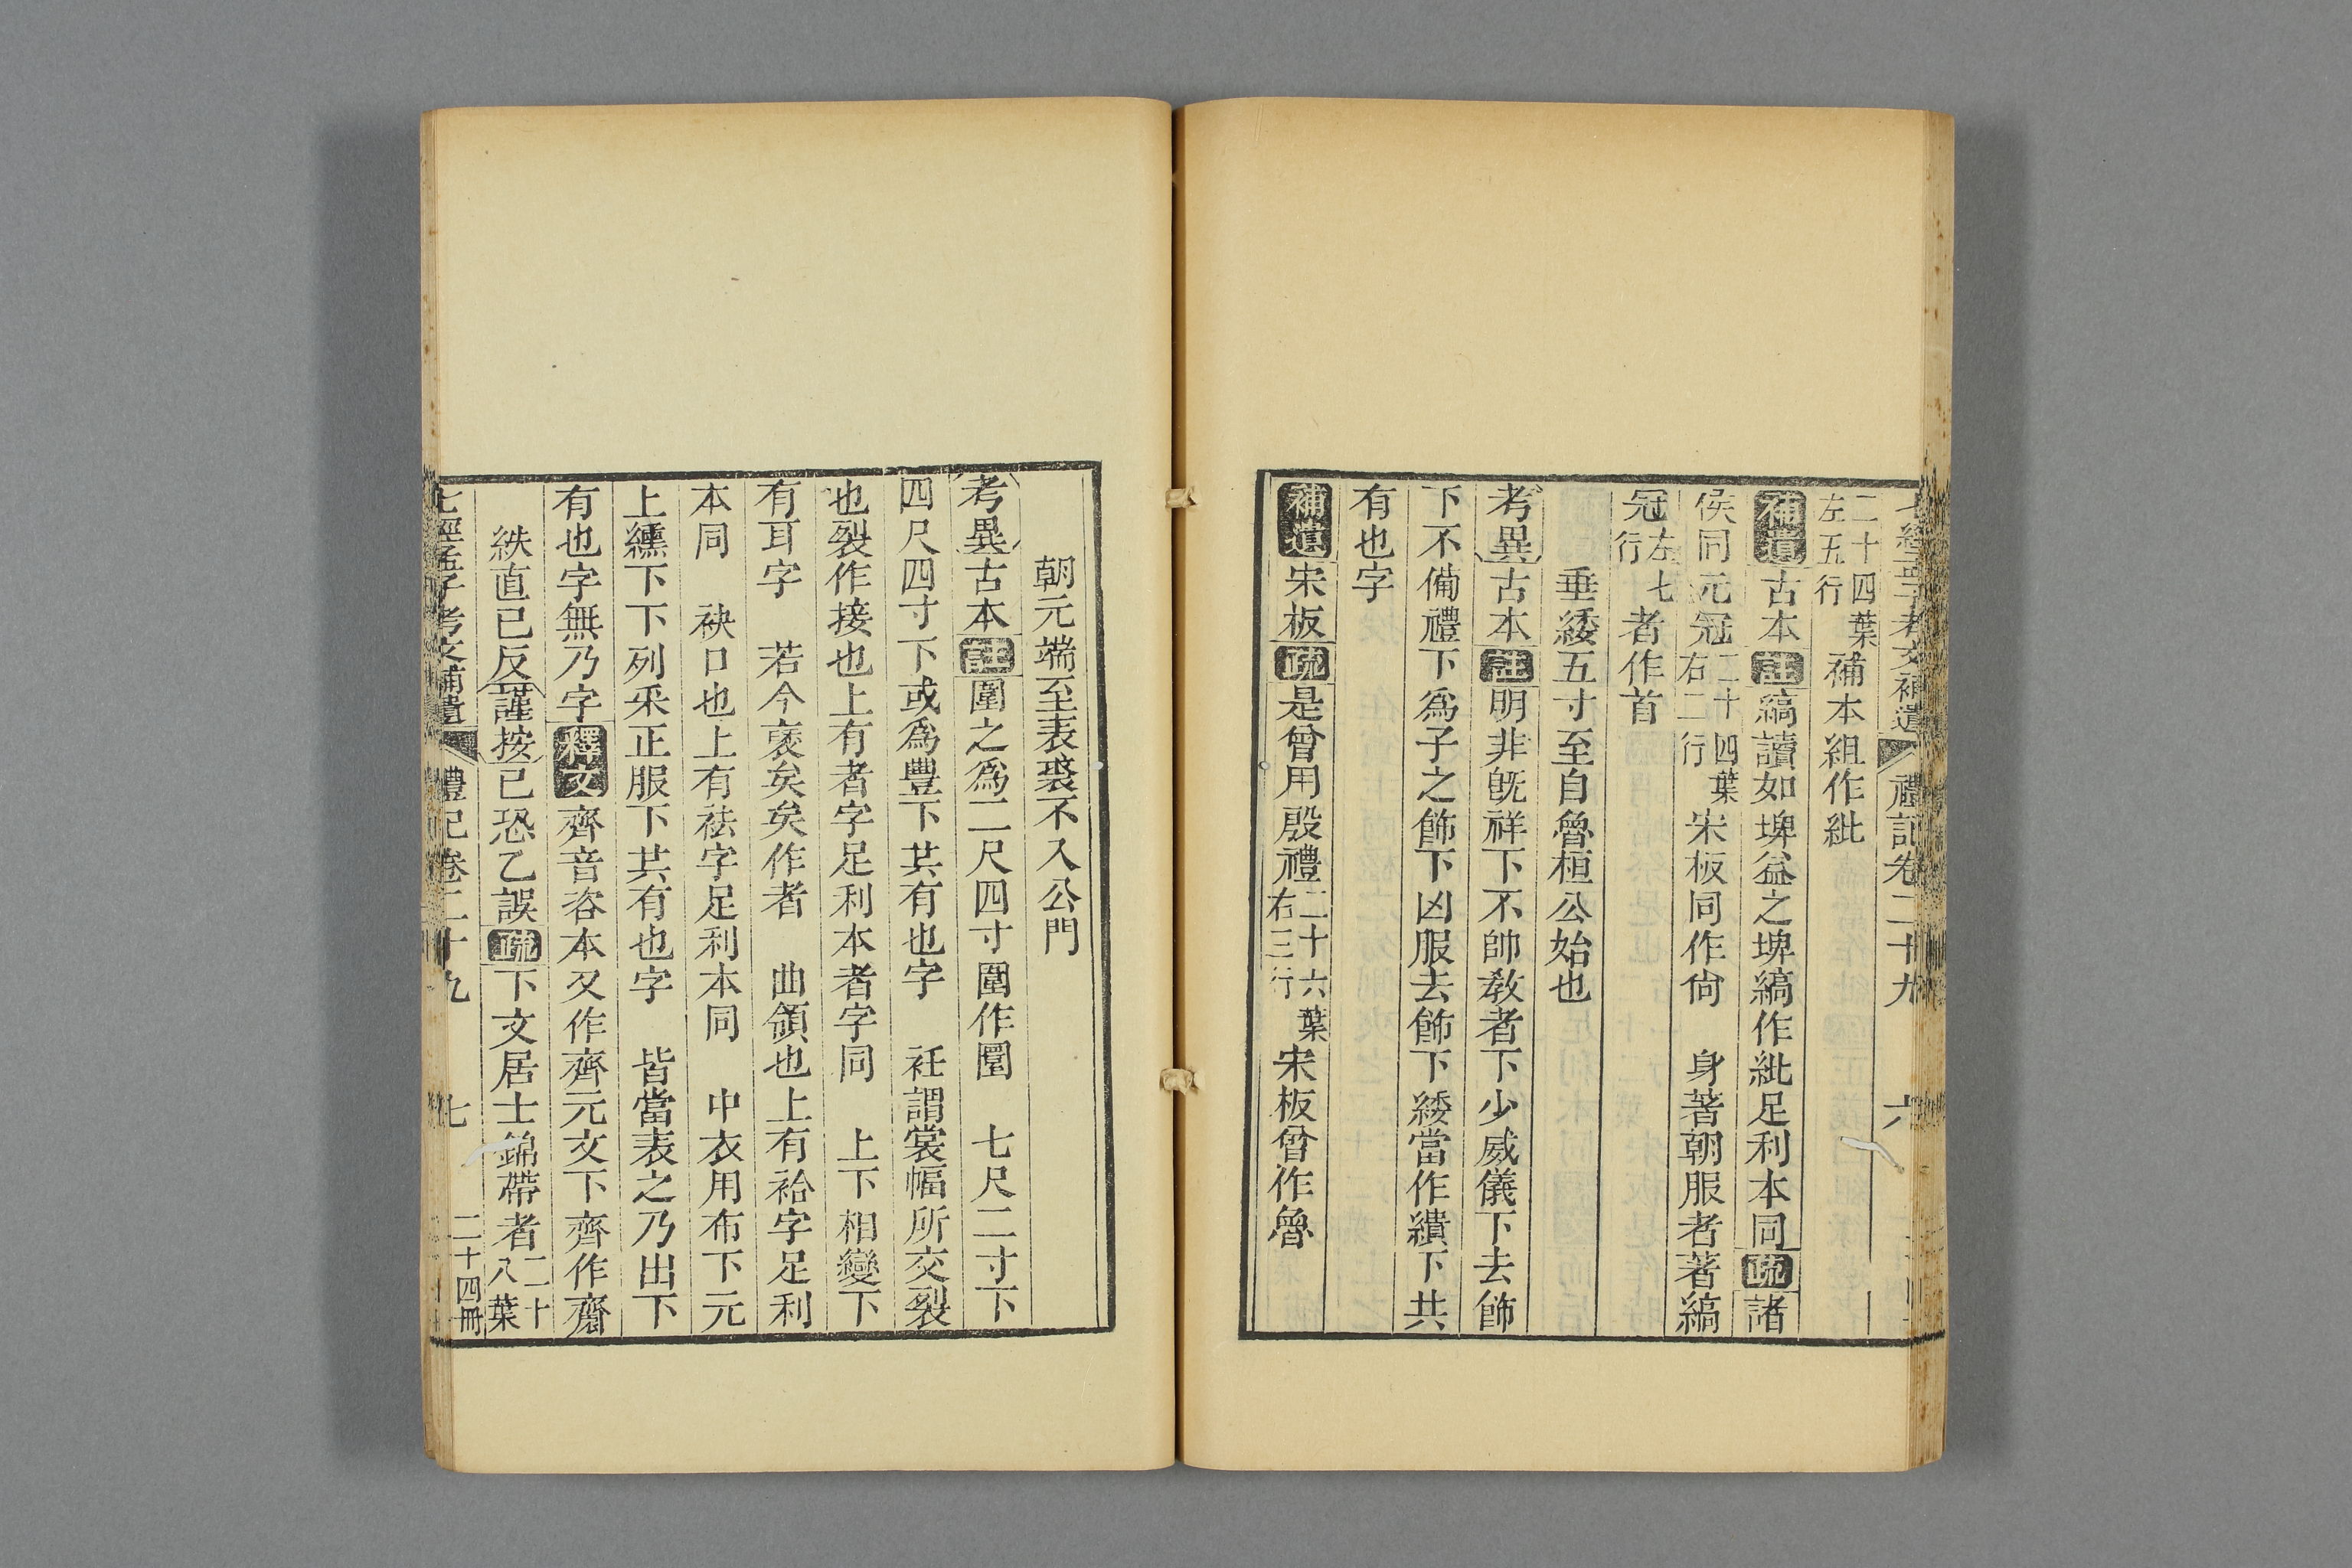 七經孟子考文補遺 禮記卷二十九 六
二十四葉左五行補本組作紕
補遺古本註縞讀如埤益之埤縞作紕足利本同疏諸
侯同元冠二十四葉右二行宋板同作尙 身著朝服者著縞
冠左七行者作首
垂緌五寸至自魯桓公始也
考異古本註明非旣祥下不帥敎者下少威儀下去飾
下不備禮下爲子之飾下凶服去飾下緌當作繢下共
有也字
補遺宋板疏是曾用殷禮二十六葉右三行宋板曾作魯
朝元端至表裘不入公門
考異古本註圍之爲二尺四寸圍作圜 七尺二寸下
四尺四寸下或爲豐下其有也字 衽謂裳幅所交裂
也裂作接也上有者字足利本者字同 上下相變下
有耳字 若今褎矣矣作者 曲領也上有袷字足利
本同 袂口也上有袪字足利本同 中衣用布下元
上纁下下列采正服下其有也字 皆當表之乃出下
有也字無乃字釋文齊音咨本又作齊元文下齊作齋
紩直已反謹按已恐乙誤疏下文居士錦帶者二十八葉
七經孟子考文補遺 禮記卷二十九 七 二十四冊